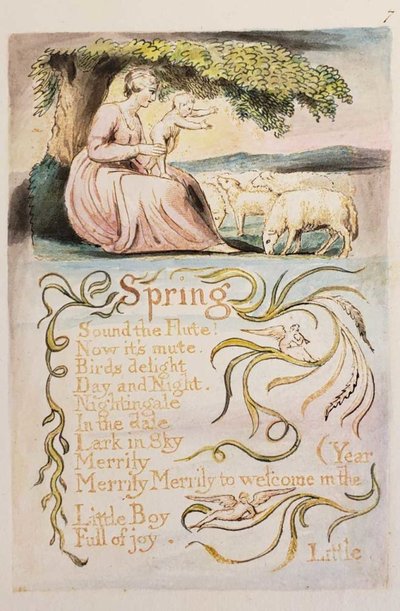 7
Spring
Sound the Flute!
Now it's mute.
Birds delight
Day and Night.
Nightingale
In the dale
Lark in Sky
Merrily
Merrily Merrily to welcome in the (Year
Little Boy
Full of joy.
Little